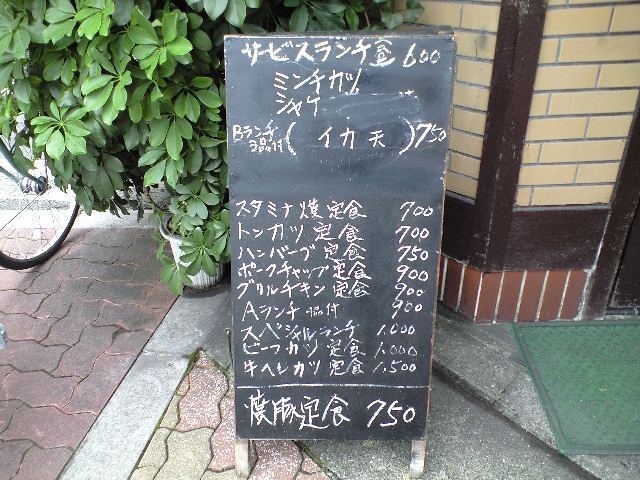 サービスランチ 600
ミンチカツ
シャケ
Bランチ 3品付 ( イカ天 ) 750
スタミナ焼定食 700
トンカツ定食 700
ハンバーグ定食 750
ポークチャップ定食 900
グリルチキン定食 900
Aランチ 品付 900
スペシャルランチ 1.000
ビーフカツ定食 1.000
牛ヘレカツ定食 1.500
焼豚定食 750